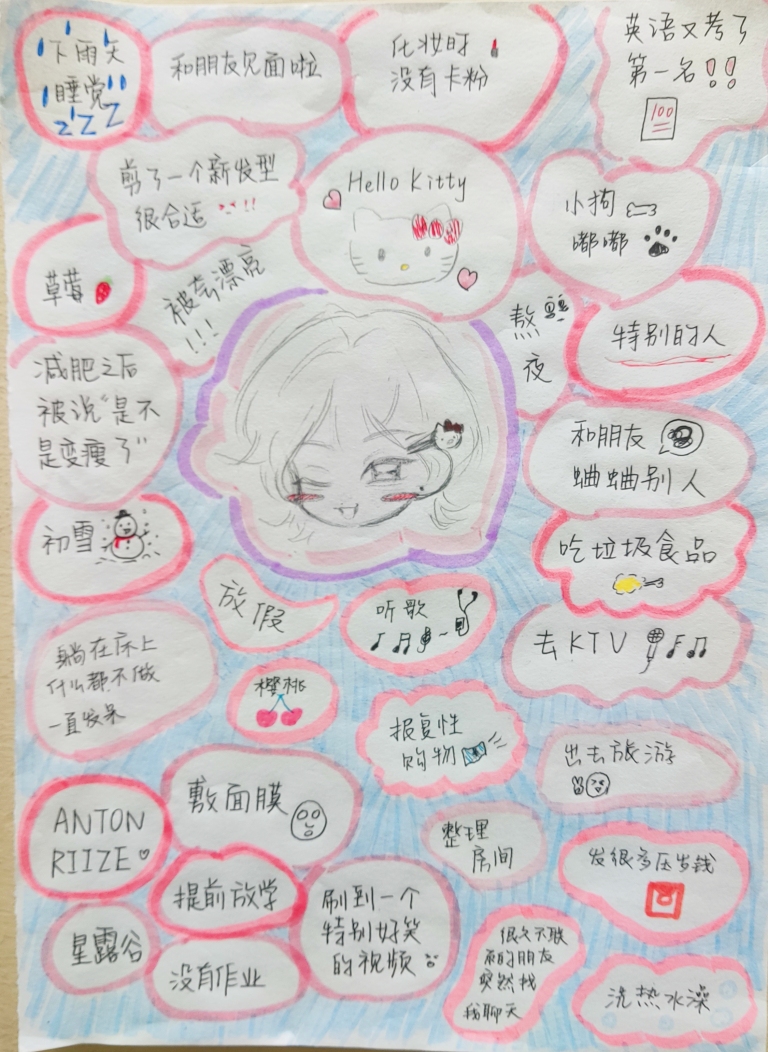 下雨天
睡觉
zZZ
和朋友见面啦
化妆时
没有卡粉
英语又考了
第一名!!
100
剪了一个新发型
很合适 !!
Hello Kitty
小狗
嘟嘟
草莓
被夸漂亮
!!!
熬
夜
特别的人
减肥之后
被说“是不
是变瘦了”
和朋友
蛐蛐别人
初雪
吃垃圾食品
放假
听歌
去KTV
躺在床上
什么都不做
一直发呆
樱桃
报复性
购物
出去旅游
敷面膜
ANTON
RIIZE
整理
房间
发很多压岁钱
提前放学
刷到一个
特别好笑
的视频
星露谷
没有作业
很久不联
系的朋友
突然找
我聊天
洗热水澡